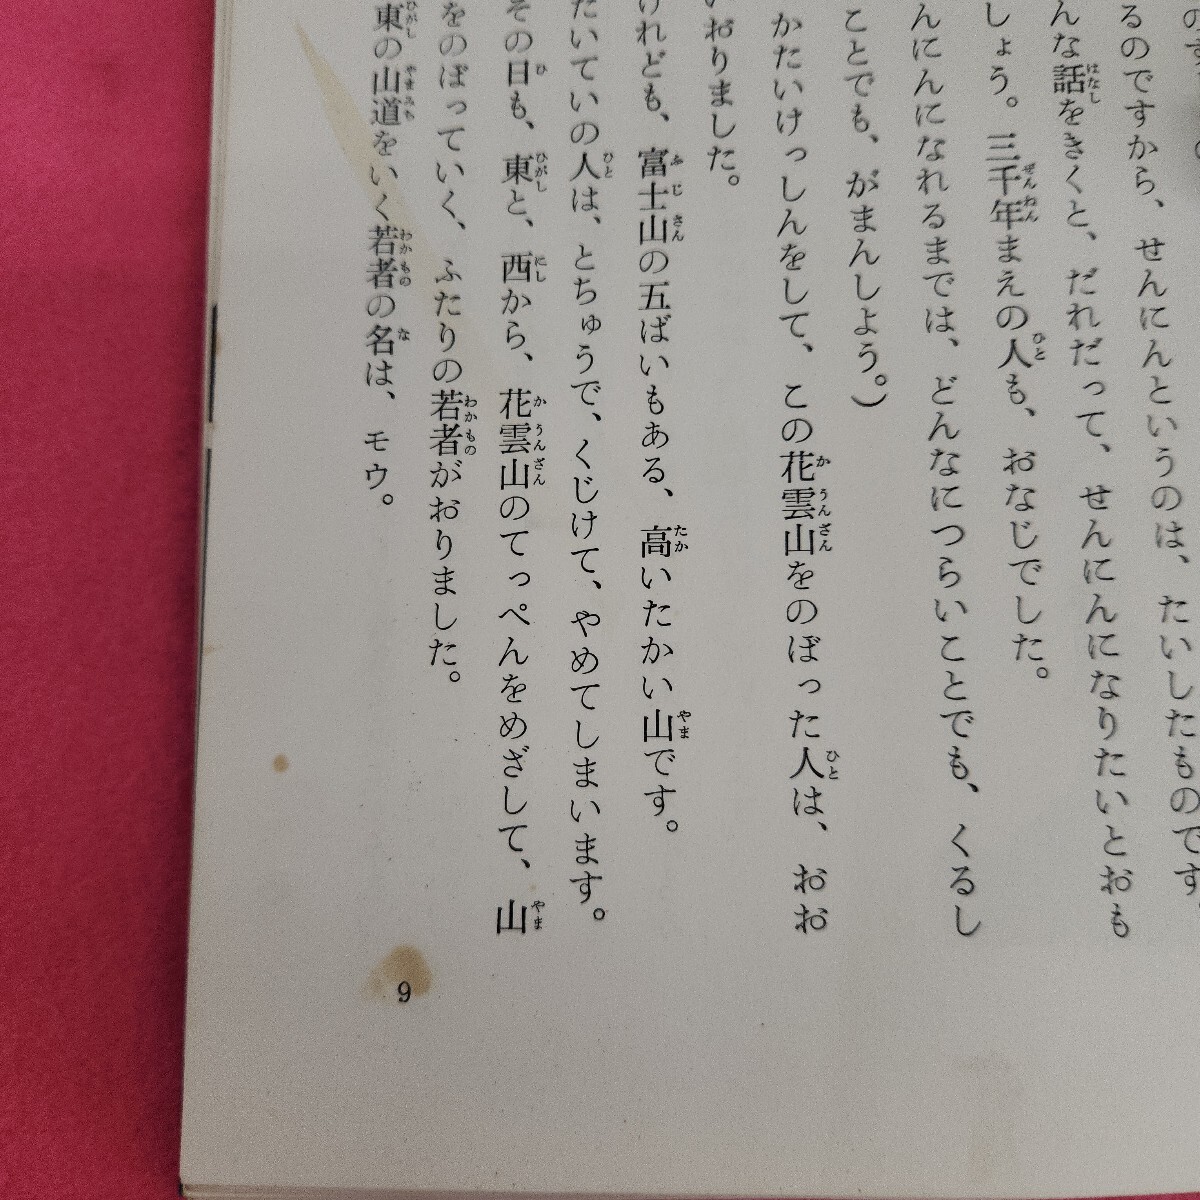 のす
るのですから、せんにんというのは、たいしたものです。
んな話をきくと、だれだって、せんにんになりたいとおも
しょう。三千年まえの人も、おなじでした。
んにんになれるまでは、どんなにつらいことでも、くるし
ことでも、がまんしよう。）
かたいけっしんをして、この花雲山をのぼった人は、おお
いおりました。
けれども、富士山の五ばいもある、高いたかい山です。
たいていの人は、とちゅうで、くじけて、やめてしまいます。
その日も、東と、西から、花雲山のてっぺんをめざして、山
をのぼっていく、ふたりの若者がおりました。
東の山道をいく若者の名は、モウ。
9